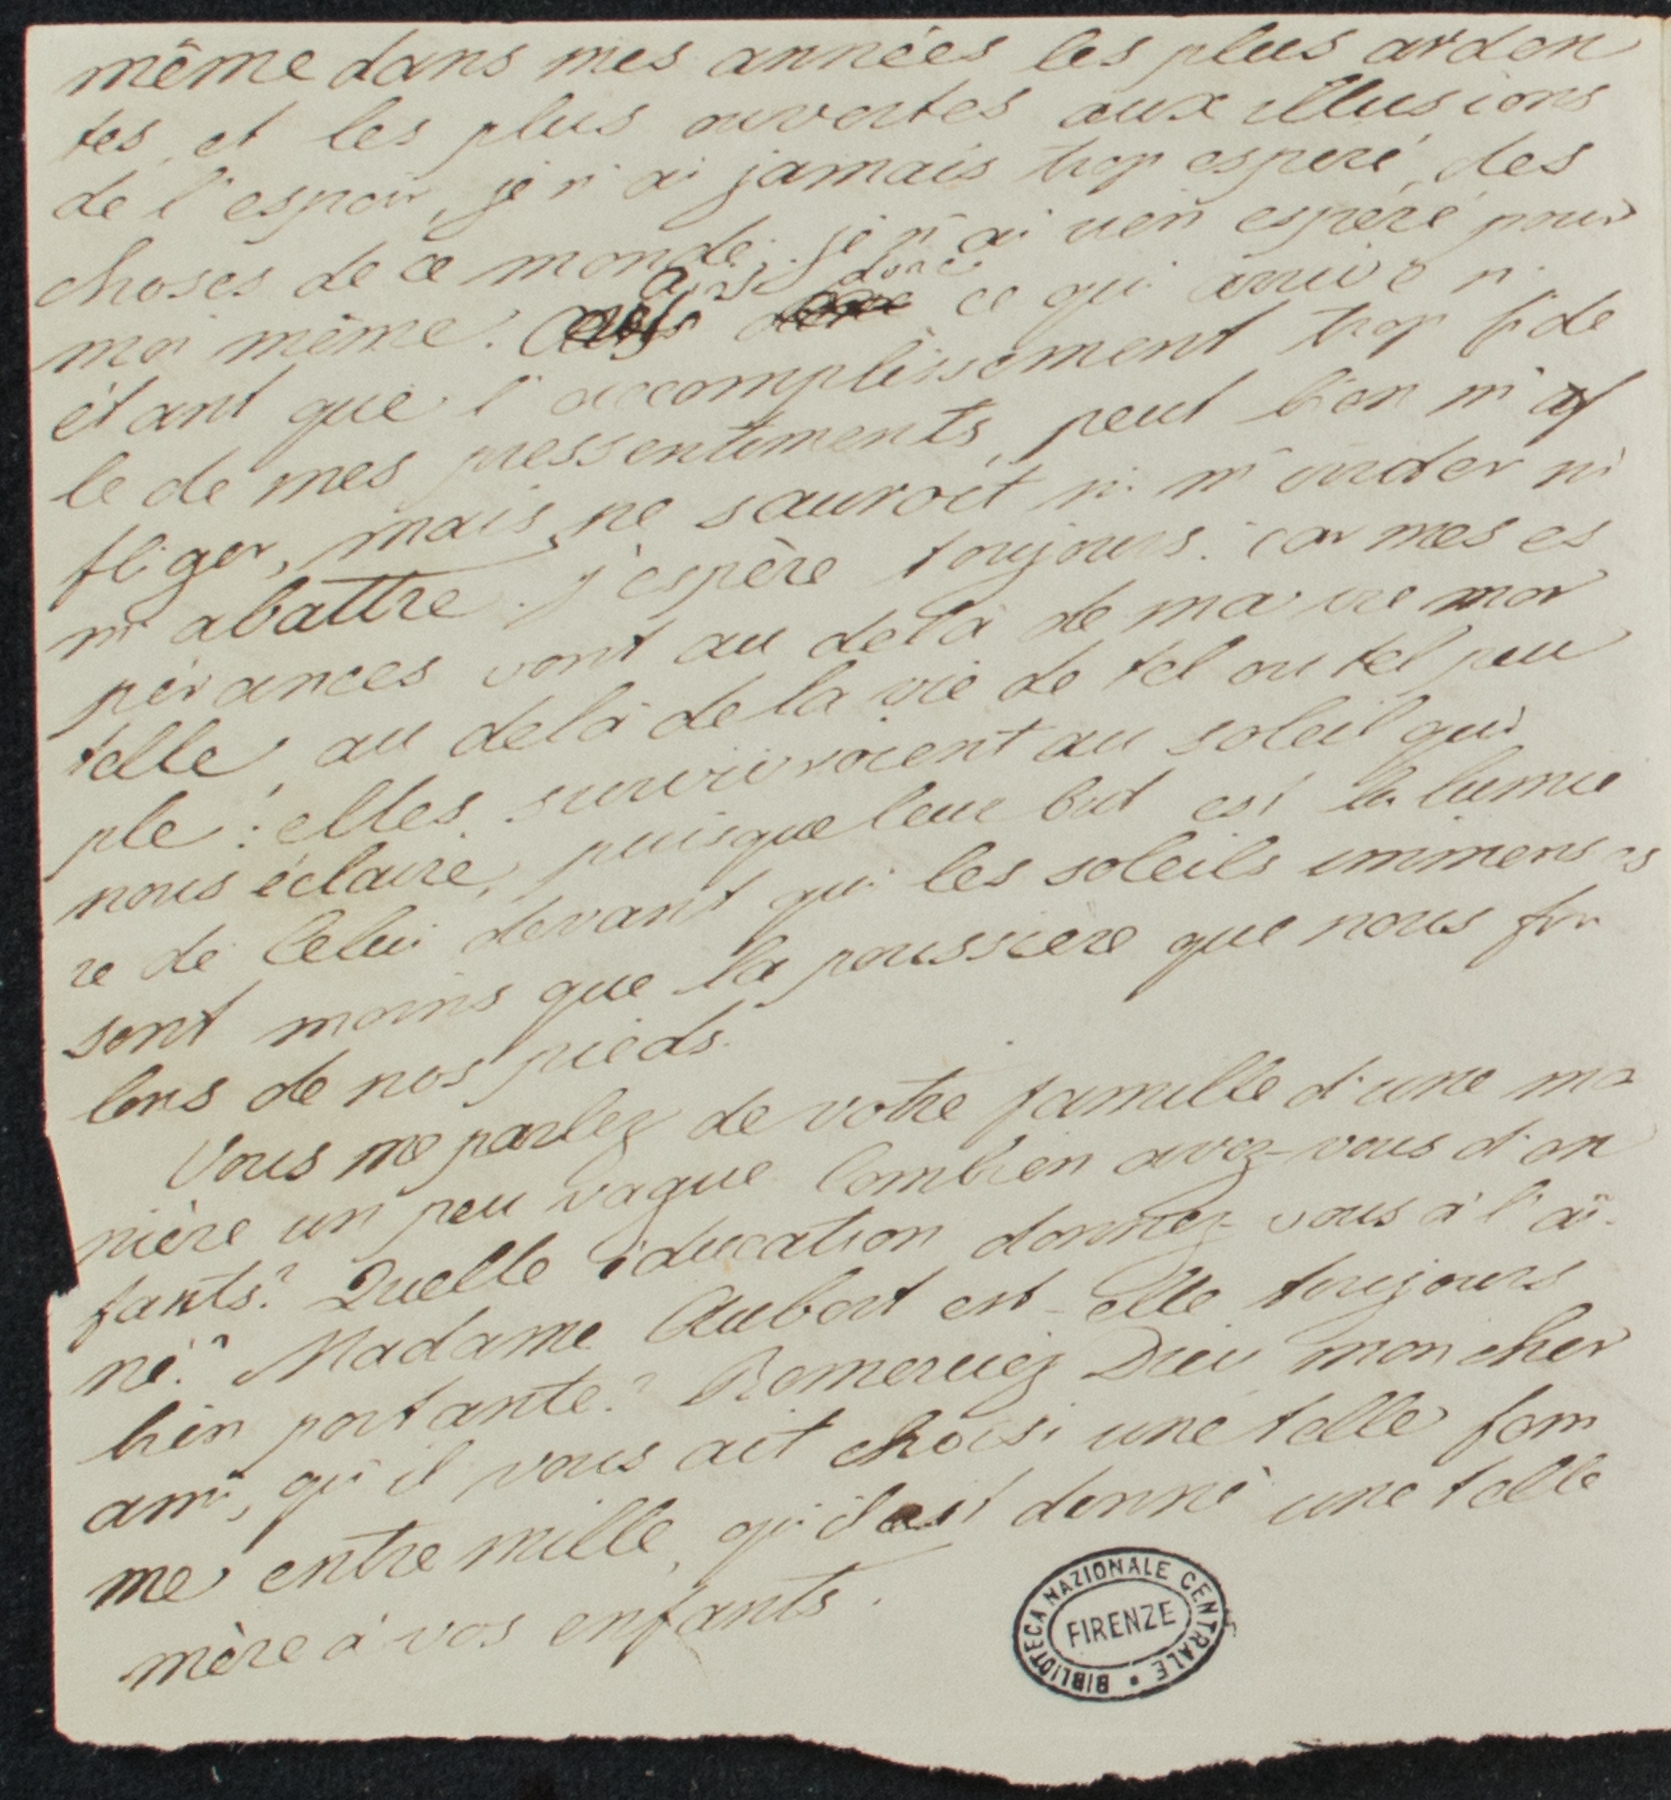 même dans mes années les plus arden
tes, et les plus ouvertes aux illusions
de l'espoir, je n'ai jamais trop espéré des
choses de ce monde; je n'ai rien espéré pour
moi même. Ainsi donc ce qui arrive n'
étant que l'accomplissement trop fidè
le de mes pressentiments, peut bien m'af
fliger, mais ne sauroit ni m'irriter ni
m'abattre. j'espère toujours: car mes es
pérances vont au delà de ma vie mor
telle, au delà de la vie de tel ou tel peu
ple: elles survivroient au soleil qui
nous éclaire, puisque leur but est la lumiè
re de Celui devant qui les soleils immenses
sont moins que la poussière que nous fou
lons de nos pieds.
Vous me parlez de votre famille d'une ma
nière un peu vague. Combien avez-vous d'en
fants? Quelle éducation donnez-vous à l'aî-
né? Madame Aubert est-elle toujours
bien portante? Remerciez Dieu mon cher
ami, qu'il vous ait choisi une telle fem
me entre mille, qu'il ait donné une telle
mère à vos enfants.
BIBLIOTECA NAZIONALE CENTRALE
FIRENZE